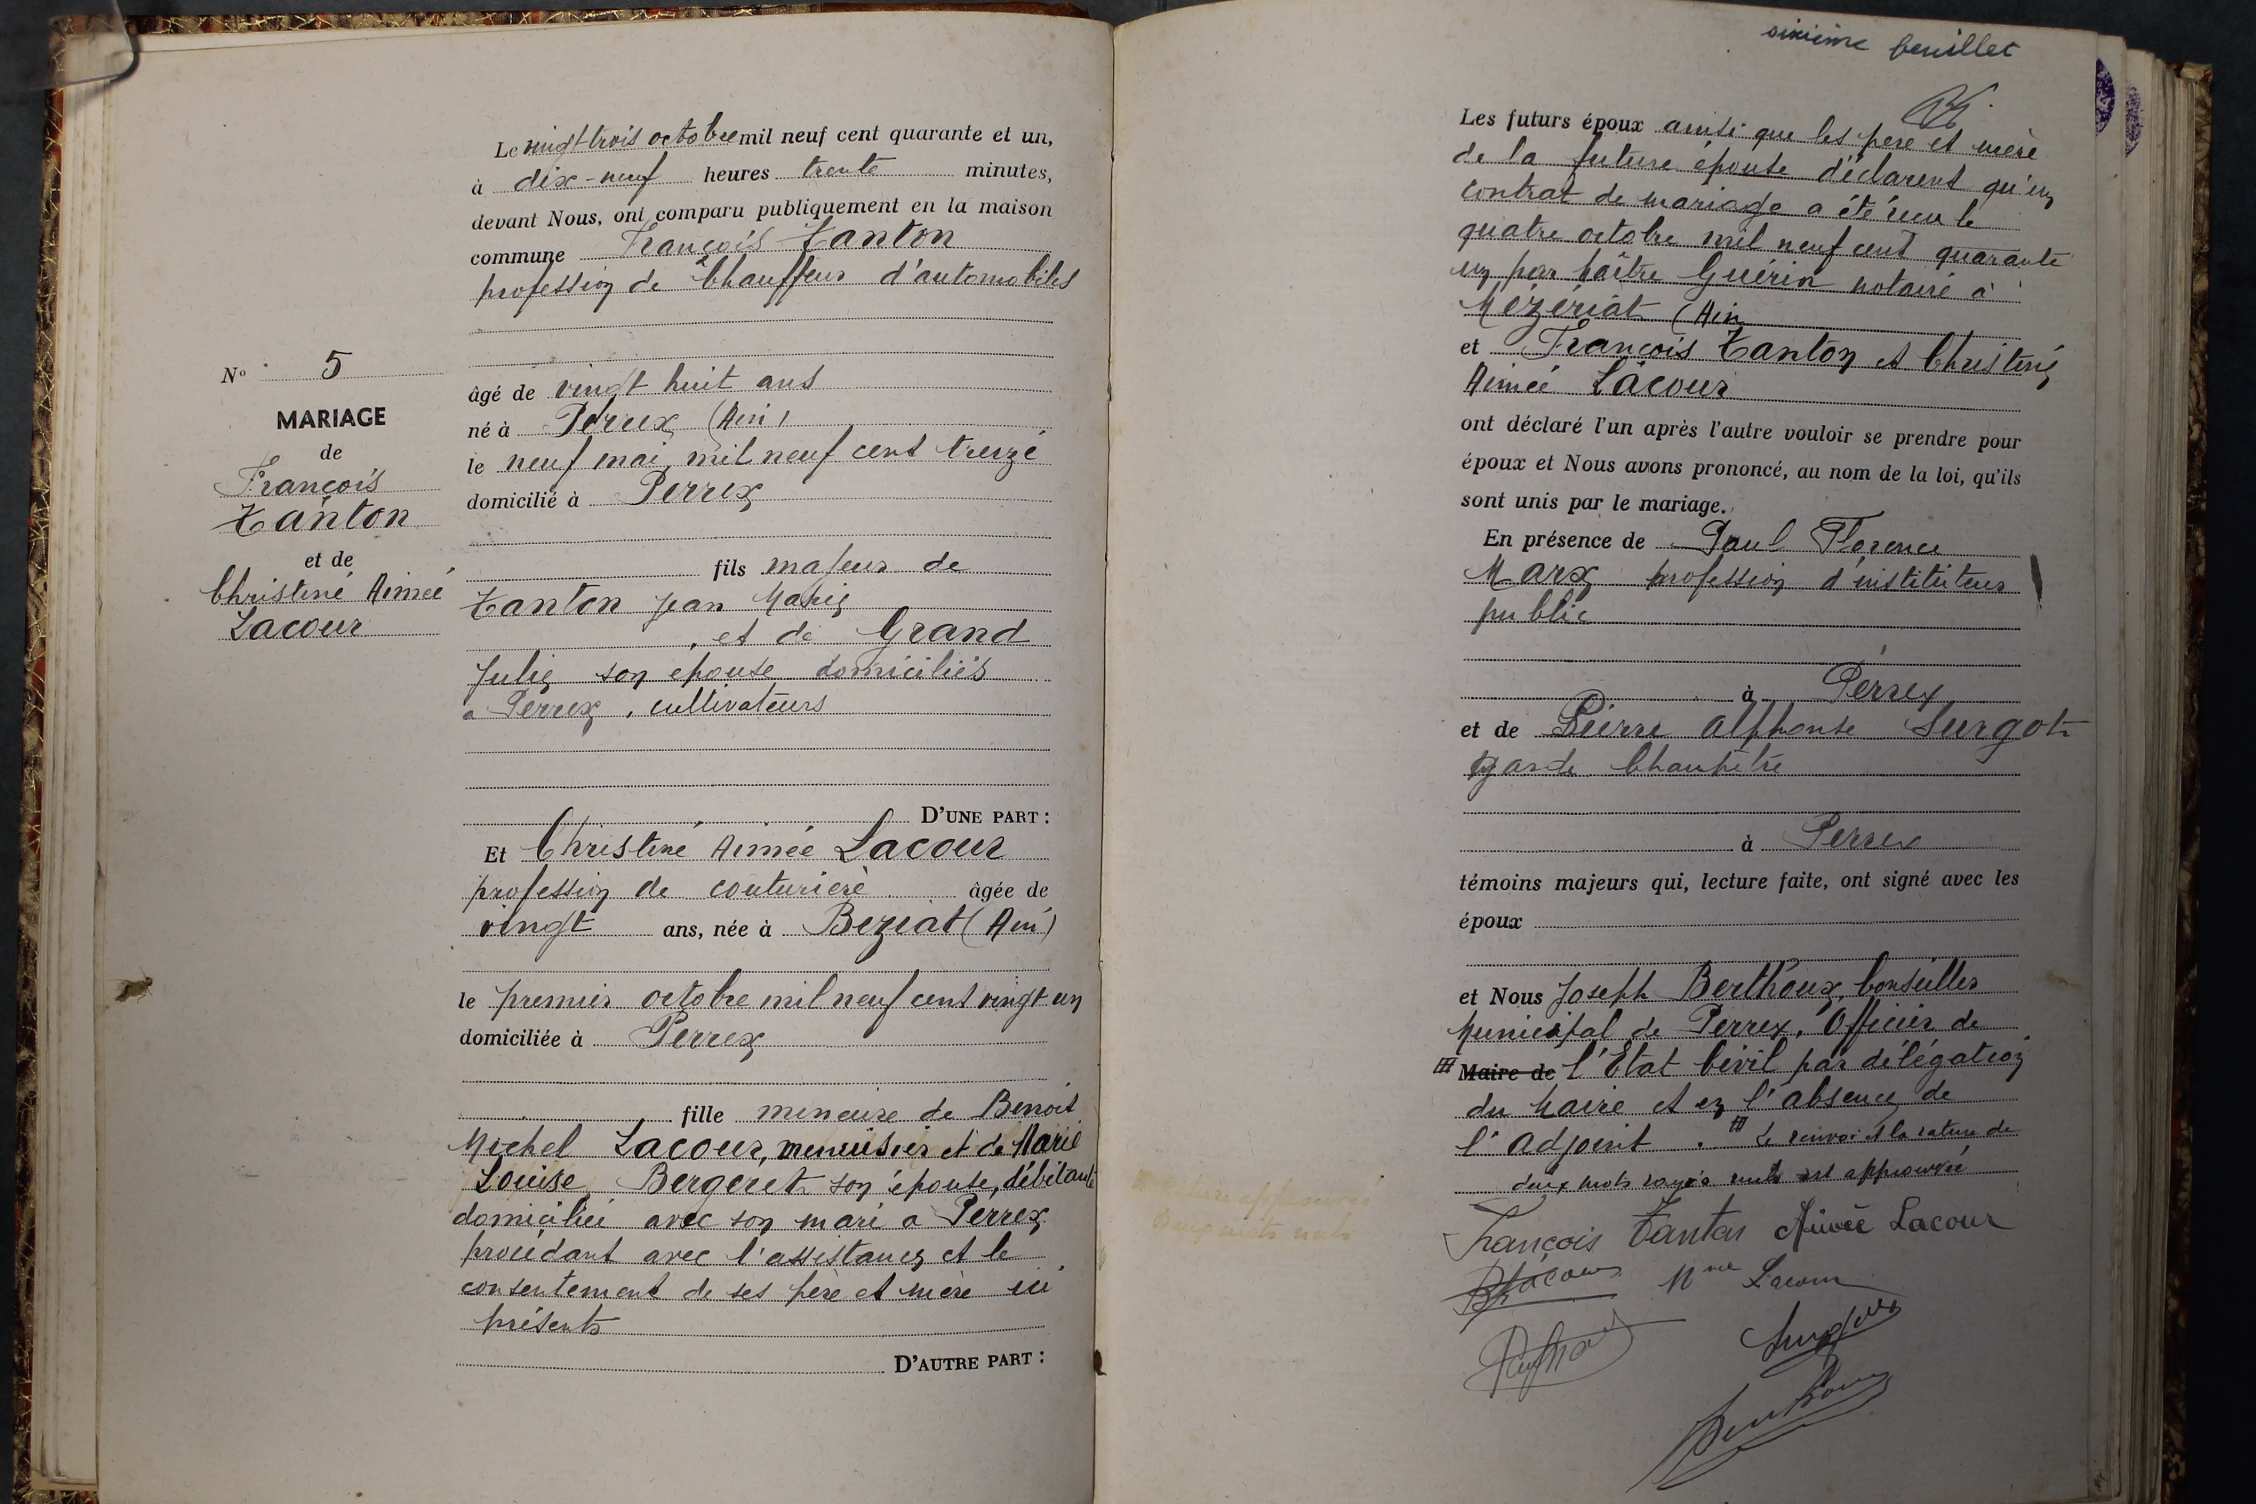 Le vingt-trois octobre mil neuf cent quarante et un,
à dix-neuf heures trente minutes,
devant Nous, ont comparu publiquement en la maison
commune François Tanton
profession de Chauffeur d'automobiles
âgé de vingt huit ans
né à Perrex (Ain)
le neuf mai mil neuf cent treize
domicilié à Perrex
fils majeur de
Tanton Jean Marie
, et de Grand
Julie son epouse domiciliés
a Perrex, cultivateurs
D'UNE PART :
Et Christine Aimée Lacour
profession de couturière âgée de
vingt ans, née à Beziat (Ain)
le premier octobre mil neuf cent vingt un
domiciliée à Perrex
fille mineure de Benoit
Michel Lacour, menuisier et de Marie
Louise Bergeret son épouse, débitante
domiciliée avec son mari a Perrex
procédant avec l'assistance et le
consentement de ses père et mère ici
présents
D'AUTRE PART :
No 5
MARIAGE
de
François
Tanton
et de
Christine Aimée
Lacour
sixième feuillet
Les futurs époux ainsi que les père et mère
de la future épouse déclarent qu'un
contrat de mariage a été reçu le
quatre octobre mil neuf cent quarante
un par Maître Guérin notaire à
Mézériat (Ain
et François Tanton et Christine
Aimée Lacour
ont déclaré l'un après l'autre vouloir se prendre pour
époux et Nous avons prononcé, au nom de la loi, qu'ils
sont unis par le mariage.
En présence de Paul Florence
Marx profession d'instituteur
public
à Perrex
et de Pierre Alphonse Surgot
garde Champêtre
à Perrex
témoins majeurs qui, lecture faite, ont signé avec les
époux
et Nous Joseph Berthoux, Conseiller
Municipal de Perrex, Officier de
Maire de l'Etat Civil par délégation
du Maire et en l'absence de
l'adjoint. Le renvoi et la rature de
deux mots rayés nuls est approuvée
François Tanton Aimée Lacour
BLacour Mme Lacour
Surgot
Berthoux